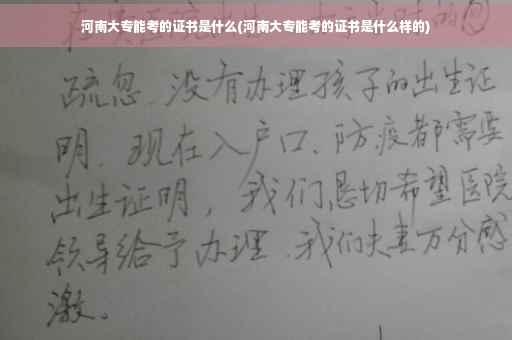 河南大专能考的证书是什么(河南大专能考的证书是什么样的)
疏忽、没有办理孩子的出生证
明、现在入户口、防疫都需要
出生证明，我们恳切希望医院
领导给予办理、我们夫妻万分感
激。